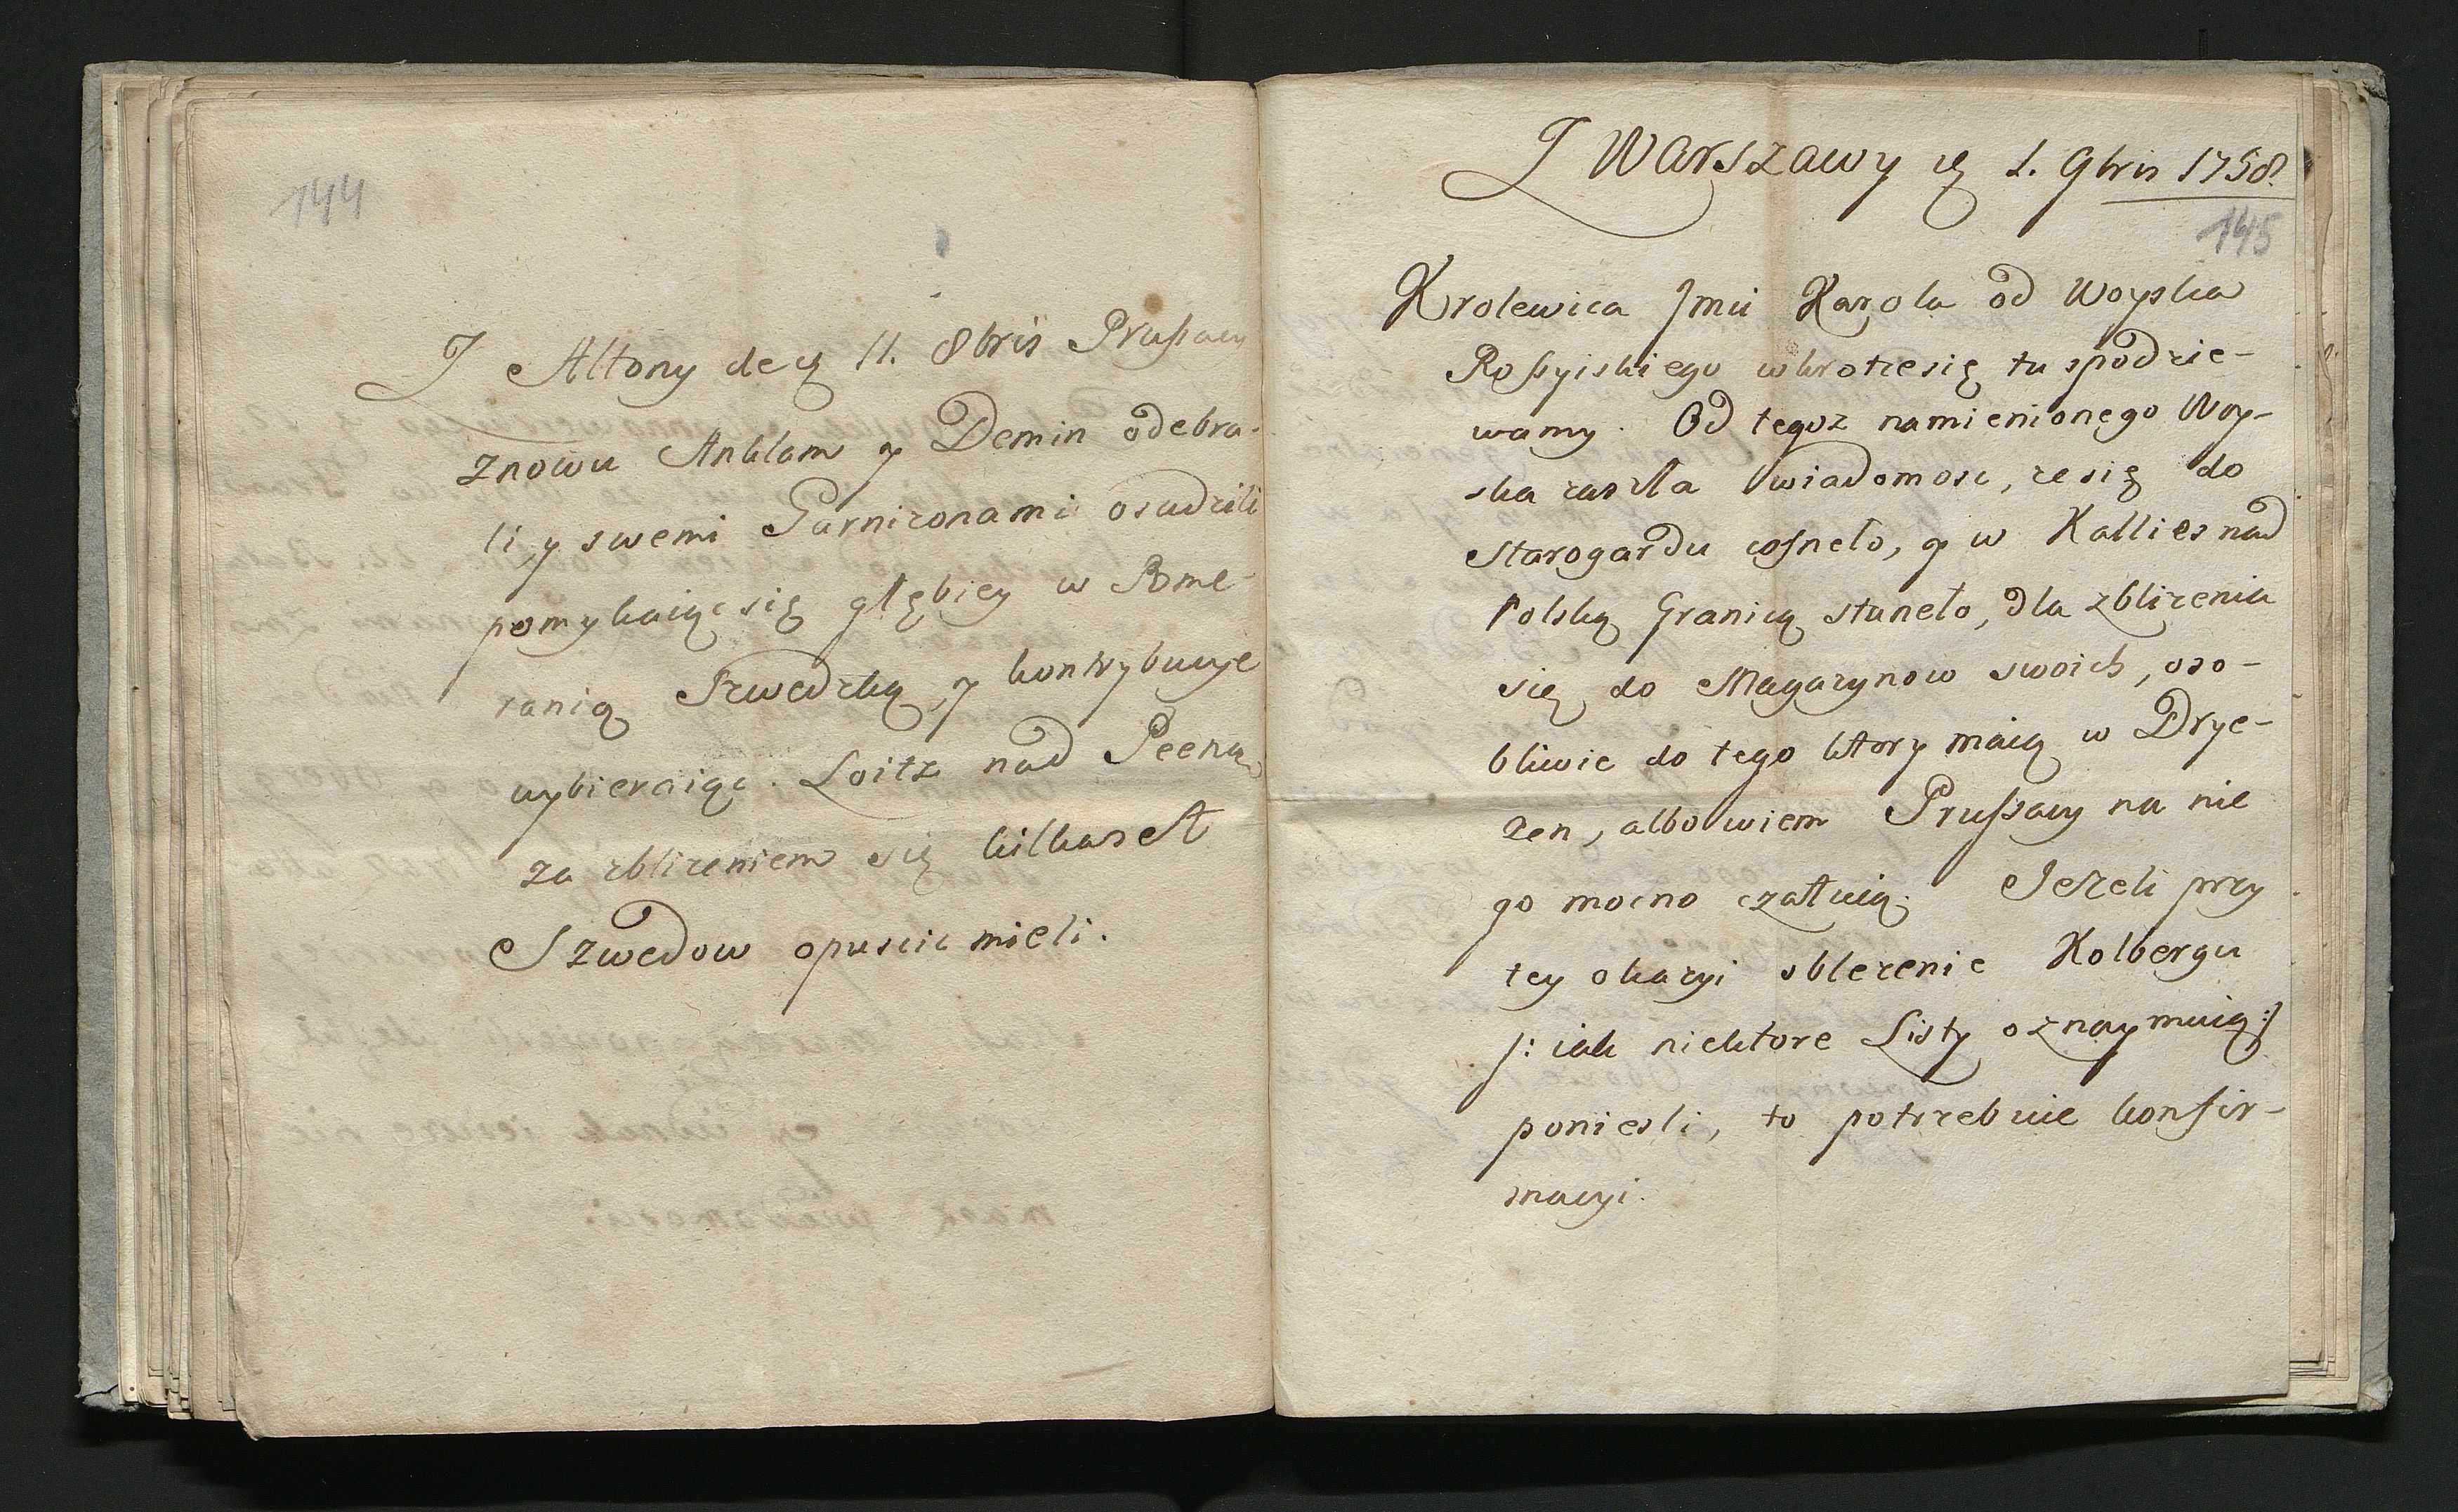 144
Z Altony de 11. 8bris Prußacy
znowu Anklam y Demin odebra-
li, y swemi Garnizonami osadzili
pomykaiąc się głębiey w Pome-
ranią Szwedzką, y kontrybucye
wybieraiąc. Loitz nad Peeną
za zbliżeniem się kilkaset
Szwedow opuscic mieli.
Z Warszawy 1. 9bris 1758.
145
Krolewica Jmci Karola od Woyska
Roßyiskiego wkrotce się tu spodzie-
wamy. Od tegoz namienionego Woy-
ska zaszła wiadomosc, ze się do
Starogardu cofneło, y w Kallies nad
Polską Granicą staneło, dla zblizenia
się do Magazynow swoich, oso-
bliwie do tego ktory maią w Drye-
zen, albowiem Prußacy na nie
go mocno czatuią. Jeżeli przy
tey okazyi oblezenie Kolbergu
/: iak niektore Listy oznaymuią :/
poniesli, to potrzebuie konfir-
macyi.